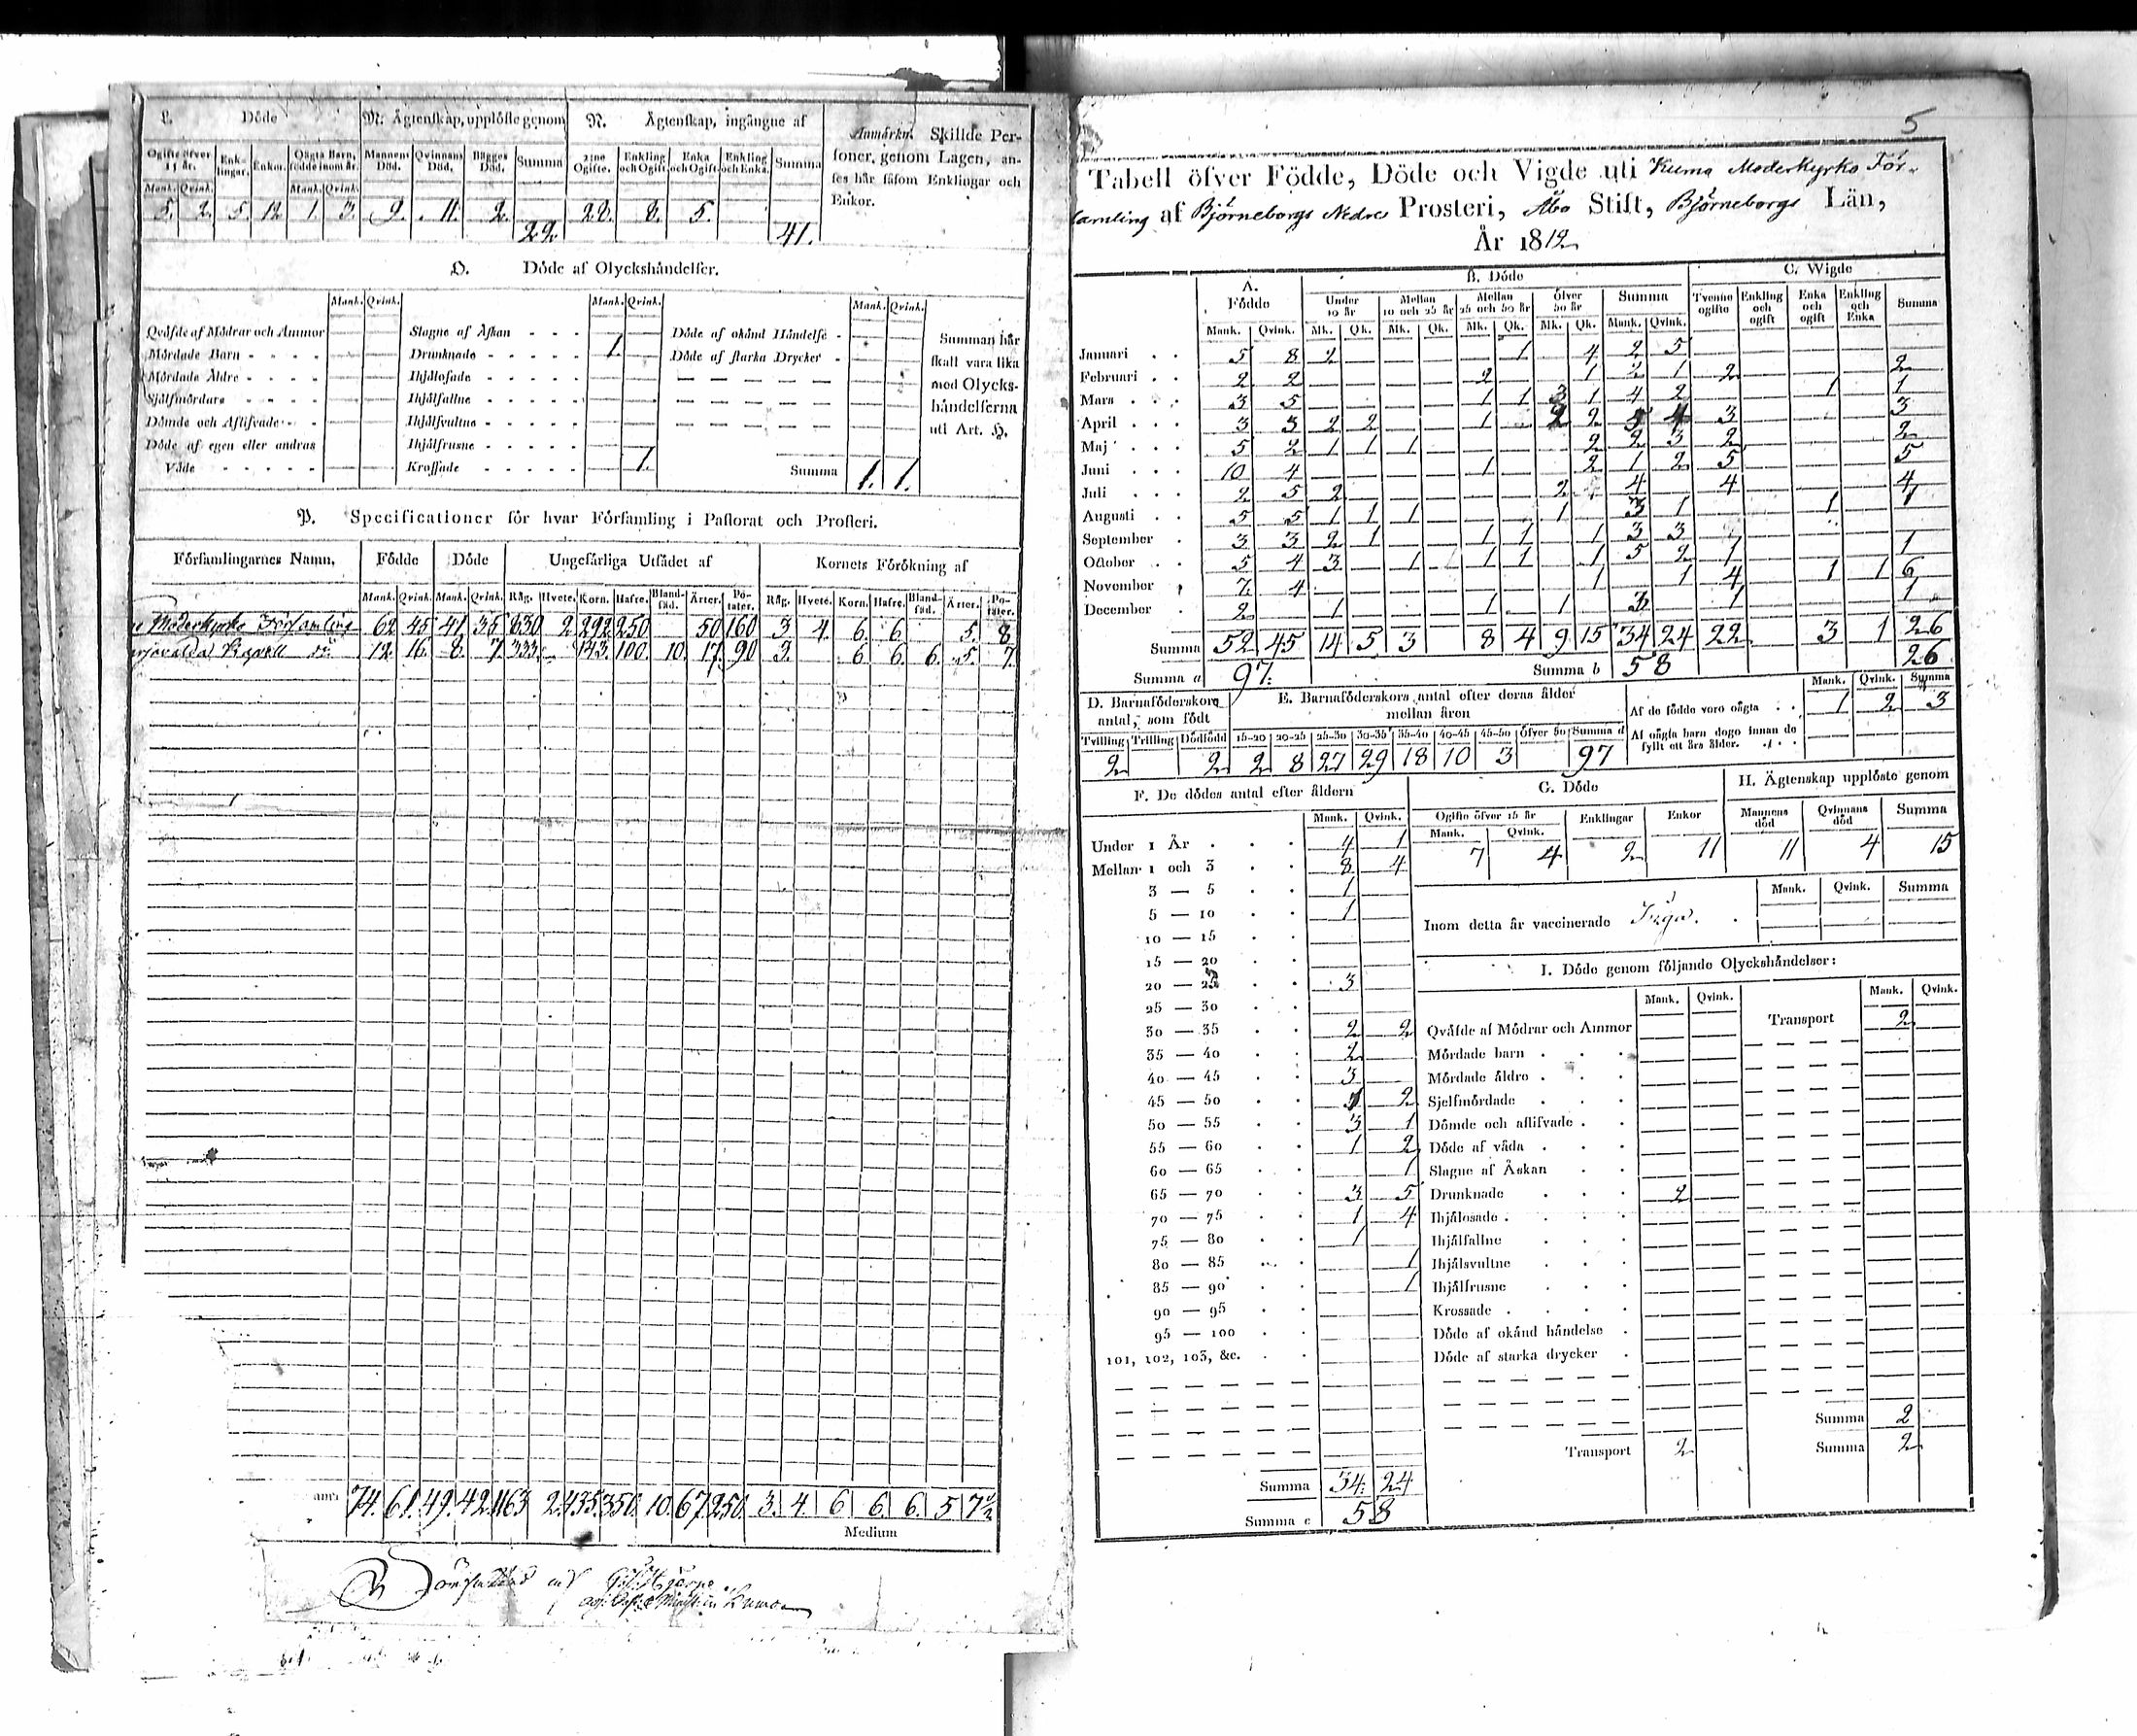 L. Döde
M. Ägtenskap, upplöste genom
N. Ägtenskap, ingångne af
Anmärkn. Skillde Personer, genom Lagen, anses här såsom Enklingar och Enkor.
Ogifte öfver 15 år. Enklingar. Enkor. Oägta Barn, födde inom år. Mannens Död. Qvinnans Död. Bägges Död. Summa 2:ne Ogifte. Enkling och Ogift. Enka och Ogift. Enkling och Enka. Summa
Mank. Qvink. Mank. Qvink.
5. 2. 5. 12. 1. 3. 9. 11. 2. 22. 28. 8. 5. 41.
O. Döde af Olyckshändelser.
Mank. Qvink. Mank. Qvink. Mank. Qvink.
Qväfde af Mödrar och Ammor
Mördade Barn
Mördade Äldre
Sjelfmördare
Dömde och Aflifvade
Döde af egen eller andras Våde
Slagne af Åskan
Drunknade 1.
Ihjälosade
Ihjälfallne
Ihjälsvultne
Ihjälfrusne
Krossade 1.
Döde af okänd Händelse
Döde af starka Drycker
Summa 1. 1.
Summan här skall vara lika med Olyckshändelserna uti Art. H.
P. Specificationer för hvar Församling i Pastorat och Prosteri.
Församlingarnes Namn. Födde Döde Ungefärliga Utsädet af Kornets Förökning af
Mank. Qvink. Mank. Qvink. Råg. Hvete. Korn. Hafre. Blandsäd. Ärter. Potater. Råg. Hvete. Korn. Hafre. Blandsäd. Ärter. Potäter.
Moderkyrko Församling 62 45 41 35 830 2 292 250 50 160 3 4. 6. 6. 5. 8
Kapell 12. 16. 8. 7. 333. 143. 100. 10. 17. 90 3. 6 6. 6. 5. 7.
74. 61. 49. 42. 1163 2. 435. 350. 10. 67. 250. 3. 4. 6 6. 6. 5 7½
Medium
5
Tabell öfver Födde, Döde och Vigde uti Kumo Moderkyrko För-
samling af Björneborgs Nedre Prosteri, Åbo Stift, Björneborgs Län,
År 1812
A. Födde B. Döde C. Wigde
Under 10 år Mellan 10 och 25 år Mellan 25 och 50 år Öfver 50 år Summa Tvenne ogifte Enkling och ogift Enka och ogift Enkling och Enka Summa
Mank. Qvink. Mk. Qk. Mk. Qk. Mk. Qk. Mk. Qk. Mank. Qvink.
Januari 5 8 2 1 4 2 5
Februari 2 2 2 1 2 1 2 2
Mars 3 5 1 1 3 1 4 2 1 1
April 3 3 2 2 1 2 2 5 4 3 3
Maj 5 2 1 1 1 2 2 3 2 2
Juni 10 4 1 2 1 2 5 5
Juli 2 5 2 2 4 4 4
Augusti 5 5 1 1 1 1 3 1 1 1
September 3 3 2 1 1 1 1 3 3
October 5 4 3 1 1 1 1 5 2 1 1
November 7 4 1 1 4 1 1 6
December 2 1 1 1 3 1 1
Summa 52 45 14 5 3 8 4 9 15 34 24 22 3 1 26
Summa a 97. Summa b 58 26
D. Barnaföderskors antal, som födt
E. Barnaföderskors antal efter deras ålder mellan åren
Tvilling Trilling Dödfödd 15-20 20-25 25-30 30-35 35-40 40-45 45-50 Öfver 50 Summa d
2 2 2 8 27 29 18 10 3 97
Mank. Qvink. Summa
Af de födde voro oägta 1 2 3
Af oägta barn dogo innan de fyllt ett års ålder.
F. De dödes antal efter åldern
Mank. Qvink.
Under 1 År 4 1
Mellan 1 och 3 8 4
3 — 5 1
5 — 10 1
10 — 15
15 — 20
20 — 25 3
25 — 30
30 — 35 2 2
35 — 40 2
40 — 45 3
45 — 50 1 2
50 — 55 3 1
55 — 60 1 2
60 — 65 1
65 — 70 3 5
70 — 75 1 4
75 — 80 1
80 — 85 1
85 — 90 1
90 — 95
95 — 100
101, 102, 103, &c.
Summa 34. 24
Summa c 58
G. Döde
Ogifte öfver 15 år Enklingar Enkor
Mank. Qvink.
7 4 2 11
H. Ägtenskap upplöste genom
Mannens död Qvinnans död Summa
11 4 15
Mank. Qvink. Summa
Inom detta år vaccinerade Inga.
I. Döde genom följande Olyckshändelser:
Mank. Qvink. Mank. Qvink.
Qväfde af Mödrar och Ammor
Mördade barn
Mördade äldre
Sjelfmördade
Dömde och aflifvade
Döde af våda
Slagne af Åskan
Drunknade 2
Ihjälosade
Ihjälfallne
Ihjälsvultne
Ihjälfrusne
Krossade
Döde af okänd händelse
Döde af starka drycker
Transport 2
Transport 2
Summa 2
Summa 2